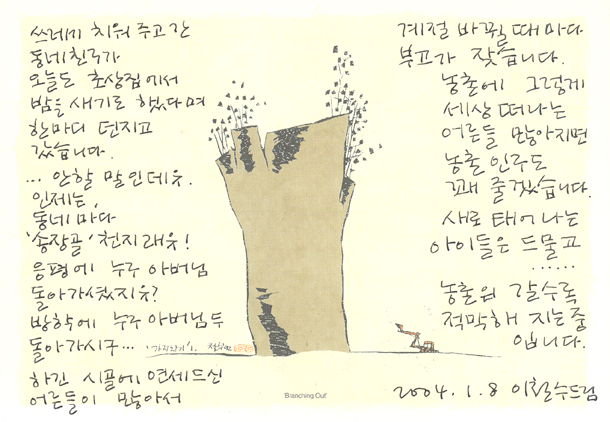 쓰레기 치워 주고 간
동네친구가
오늘도 초상집에서
밤을 새기로 했다며
한마디 던지고
갔습니다.
... 안할 말인데유.
인제는,
동네마다
'송장골' 천지래유!
응평에 누구 아버님
돌아가셨지유?
방학에 누구 아버님두
돌아가시구...
하긴 시골에 연세드신
어른들이 많아서
'가지치기' 1. 철수 02
'Branching Out'
계절 바뀔 때 마다
부고가 잦습니다.
농촌에 그렇게
세상 떠나는
어른들 많아지면
농촌 인구도
꽤 줄겠습니다.
새로 태어나는
아이들은 드물고
......
농촌의 갈수록
적막해 지는 중
입니다.
2004. 1. 8 이철수드림